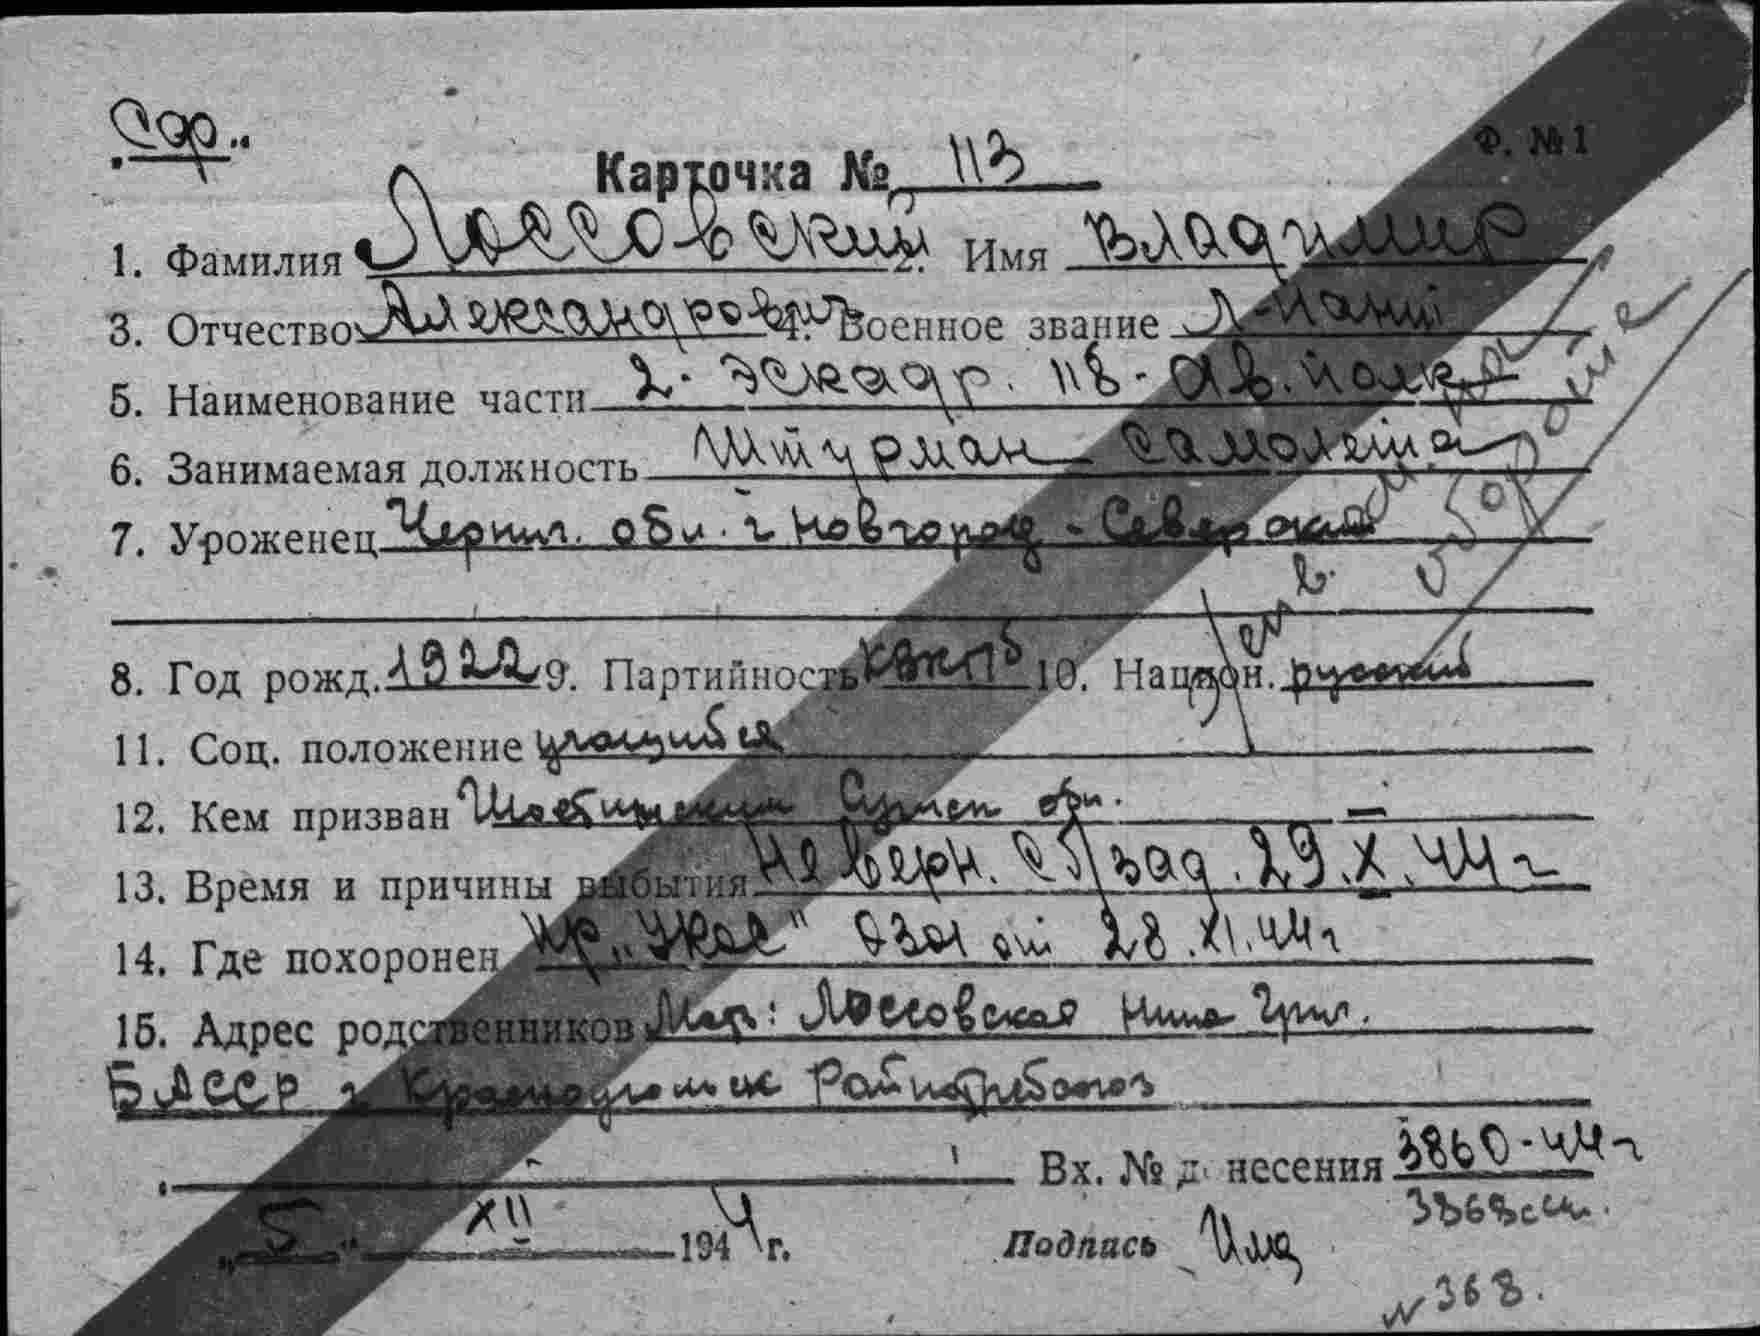 Сдр.
Ф. №1
Карточка № 113
1. Фамилия Лоссовский 2. Имя Владимир
3. Отчество Александрович 4. Военное звание Л-нант
5. Наименование части 2. Эскадр. 118 - Ав. полк
6. Занимаемая должность Штурман самолета
7. Уроженец Черниг. обл. г Новгород - Северский
8. Год рожд. 1922 9. Партийность КВЛКСМ 10. Национ. русский
11. Соц. положение учащийся
12. Кем призван Сумск обл.
13. Время и причины выбытия Не верн. с б/зад. 29.X.44 г
14. Где похоронен пр. "Укас" 0301 от 28.XI.44 г
15. Адрес родственников Мать: Лоссовская Нина Григ.
БАССР г Райпотребсоюз
Вх. № д несения 3860-44 г
"5" XII 1944 г. Подпись
3868
№ 368.